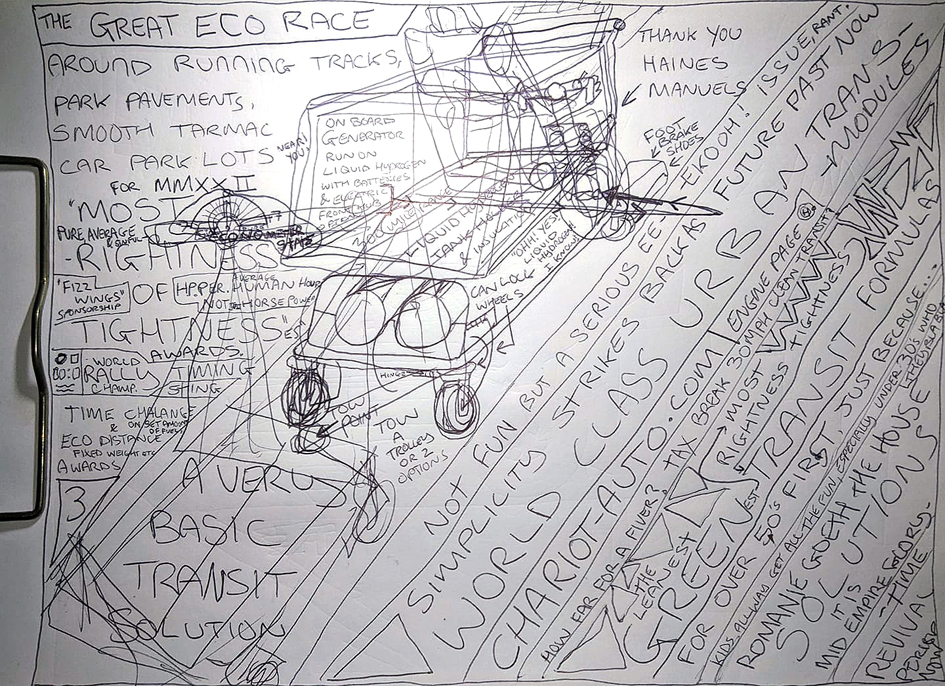 THE GREAT ECO RACE
AROUND RUNNING TRACKS,
PARK PAVEMENTS,
SMOOTH TARMAC
CAR PARK LOTS NEAR YOU!
FOR MMXXII
"MOST
PURE AVERAGE
-RIGHTNESS
"FIZZ
WINGS"
SPONSORSHIP
OF
AVERAGE
H.P.PER. HUMAN HOUR
NOT HORSE POWER
TIGHTNESS"EST
WORLD AWARDS.
RALLY TIMING
CHAMP. SHING
TIME CHALANGE
& ON SET AMOUNT
OF FUEL
ECO DISTANCE
FIXED WEIGHT ETC
AWARDS
3
A VERY
BASIC
TRANSIT
SOLUTION
ON BOARD
GENERATOR
RUN ON
LIQUID HYDROGEN
WITH BATTERIES
& ELECTRIC
FRONT
LIQUID
TANK
& INSULATION
"OHH YES
LIQUID
HYDROGEN
I KNOW!
CAN LOCK
WHEELS
HINGE
TOW
POINT
TOW
A
TROLLERS
OR 2
OPTIONS
THANK YOU
HAINES
MANUELS
FOOT
BRAKE
SHOES
NOT FUN BUT A SERIOUS EE EKOOH! ISSUE, RANT.
SIMPLICITY STRIKES BACK AS FUTURE PAST NOW
WORLD CLASS URBAN TRANS-
MODULES
CHARIOT-AUTO.COM ENGINE PAGE
HOW FAR FOR A FIVER? TAX BREAK 30MPH CLEAN TRANSIT?
THE
LEANEST
"MOST
RIGHTNESS
TIGHTNESS
GREENEST TRANSIT FORMULAS
FOR OVER 50'S FIRST JUST BECAUSE...
KIDS ALLWAY GET ALL THE FUN, ESPECIALLY UNDER 30'S WHO
ROMANIE GOETH THE HOUSE
SOLUTIONS
IT IS
MID EMPIRE GLORY.
REVIVAL
-TIME